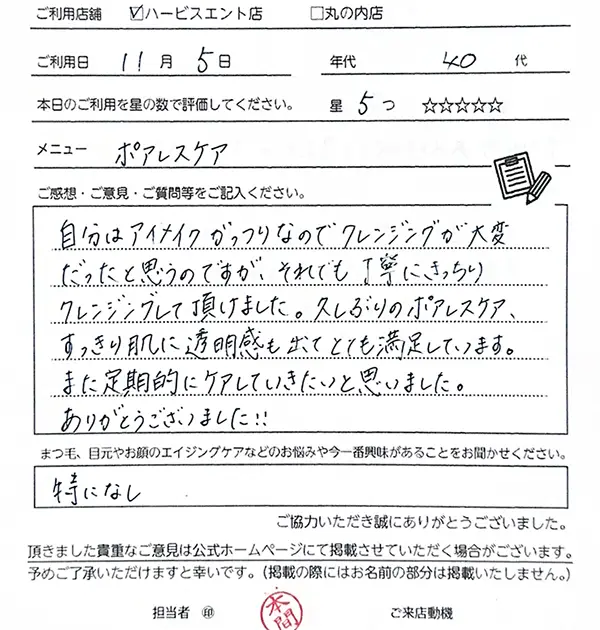 ご利用店舗 ☑ハービスエント店 □丸の内店
ご利用日 11月5日 年代 40代
本日のご利用を星の数で評価してください。 星5つ ☆☆☆☆☆
メニュー ポアレスケア
ご感想・ご意見・ご質問等をご記入ください。
自分はアイメイクがっつりなのでクレンジングが大変
だったと思うのですが、それでも丁寧にきっちり
クレンジングして頂けました。久しぶりのポアレスケア、
すっきり肌に透明感も出てとても満足しています。
また定期的にケアしていきたいと思いました。
ありがとうございました!!
まつ毛、目元やお顔のエイジングケアなどのお悩みや今一番興味があることをお聞かせください。
特になし
ご協力いただき誠にありがとうございました。
頂きました貴重なご意見は公式ホームページにて掲載させていただく場合がございます。
予めご了承いただけますと幸いです。(掲載の際にはお名前の部分は掲載いたしません。)
担当者 ㊞ 本間 ご来店動機